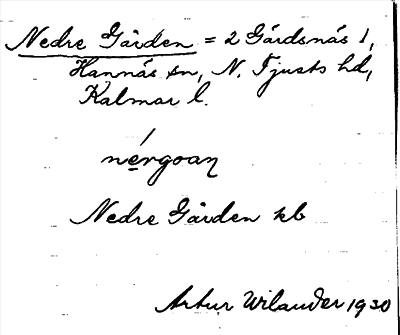 Nedre Gården = 2 Gårdsnäs 1,
Hannäs sn, N. Tjusts hd,
Kalmar l.
nérgoaŋ
Nedre Gården kb
Artur Wilander 1930